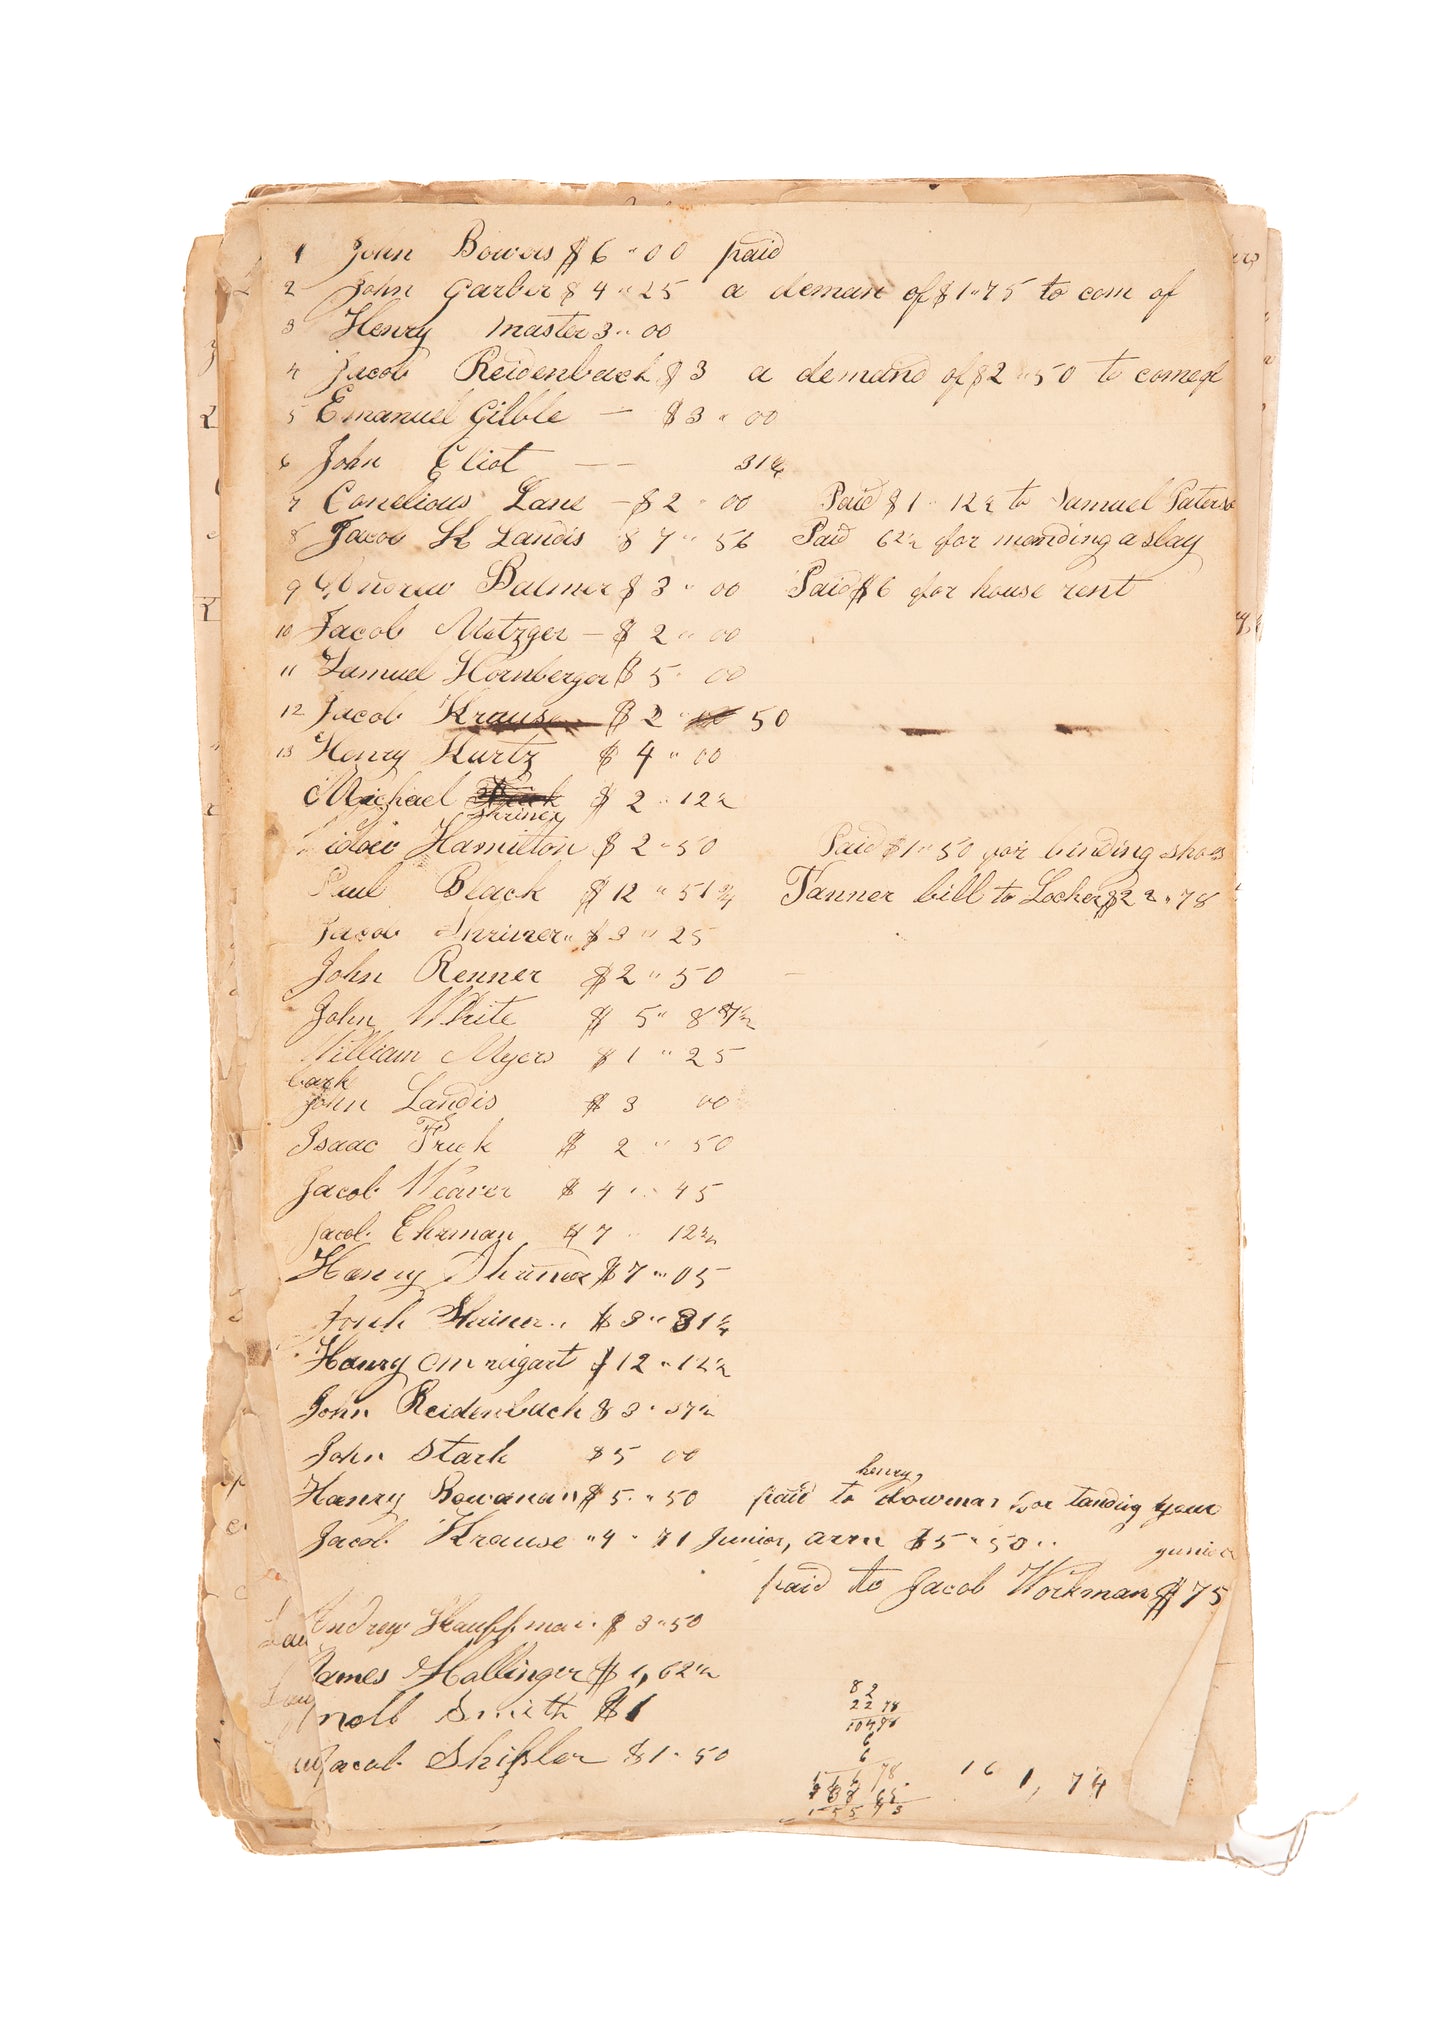 1 John Bowers $6 " 00 paid
2 John Garber $4 " 25 a deman of $1 " 75 to com of
3 Henry master 3 " 00
4 Jacob Reidenbach $3 a demand of $2 " 50 to come of
5 Emanuel Gibble — $3 " 00
6 John Eliot — — 31 ¼
7 Cornelious Lane — $2 " 00 Paid $1 " 12 ½ to Samuel Paterso
8 Jacob K Landis $7 " 56 Paid 62 ½ for mending a slay
9 Andrew Balmer $3 " 00 Paid $6 for house rent
10 Jacob Metzger — $2 " 00
11 Samuel Hornberger $5 " 00
12 Jacob Krause $2 " 50
13 Henry Kurtz $4 " 00
Michael $2 " 12 ½
Shriner
Widow Hamilton $2 " 50 Paid $1 " 50 for binding shoes
Paul Black $12 " 51 ¾ Tanner bill to Locher $22 " 78
Jacob Shriner " $3 " 25
John Renner $2 " 50
John White $5 " 8
William Myers $1 " 25
bark
John Landis $3 00
Isaac Frick $2 " 50
Jacob Weaver $4 " 45
Jacob Ehrman $7 " 12 ½
Henry Shriner $7 " 05
$3 " 31 ¼
Henry $12 " 12 ½
John Reidenbach $3 " 37 ½
John Stark $5 00
henry,
Henry Bowman $5 " 50 paid to Bowman for tanding your
Jacob Krause " 4 " 71 Junior, $5 " 50 " junior
paid to Jacob Workman $75
Andrey Kauffman $3 " 50
James Hollinger $1, 62 ½
Smith $1
Jacob Shißler $1 " 50
82
22 78
104 78
6
6
116 78
38 65
155 43
16 1, 74